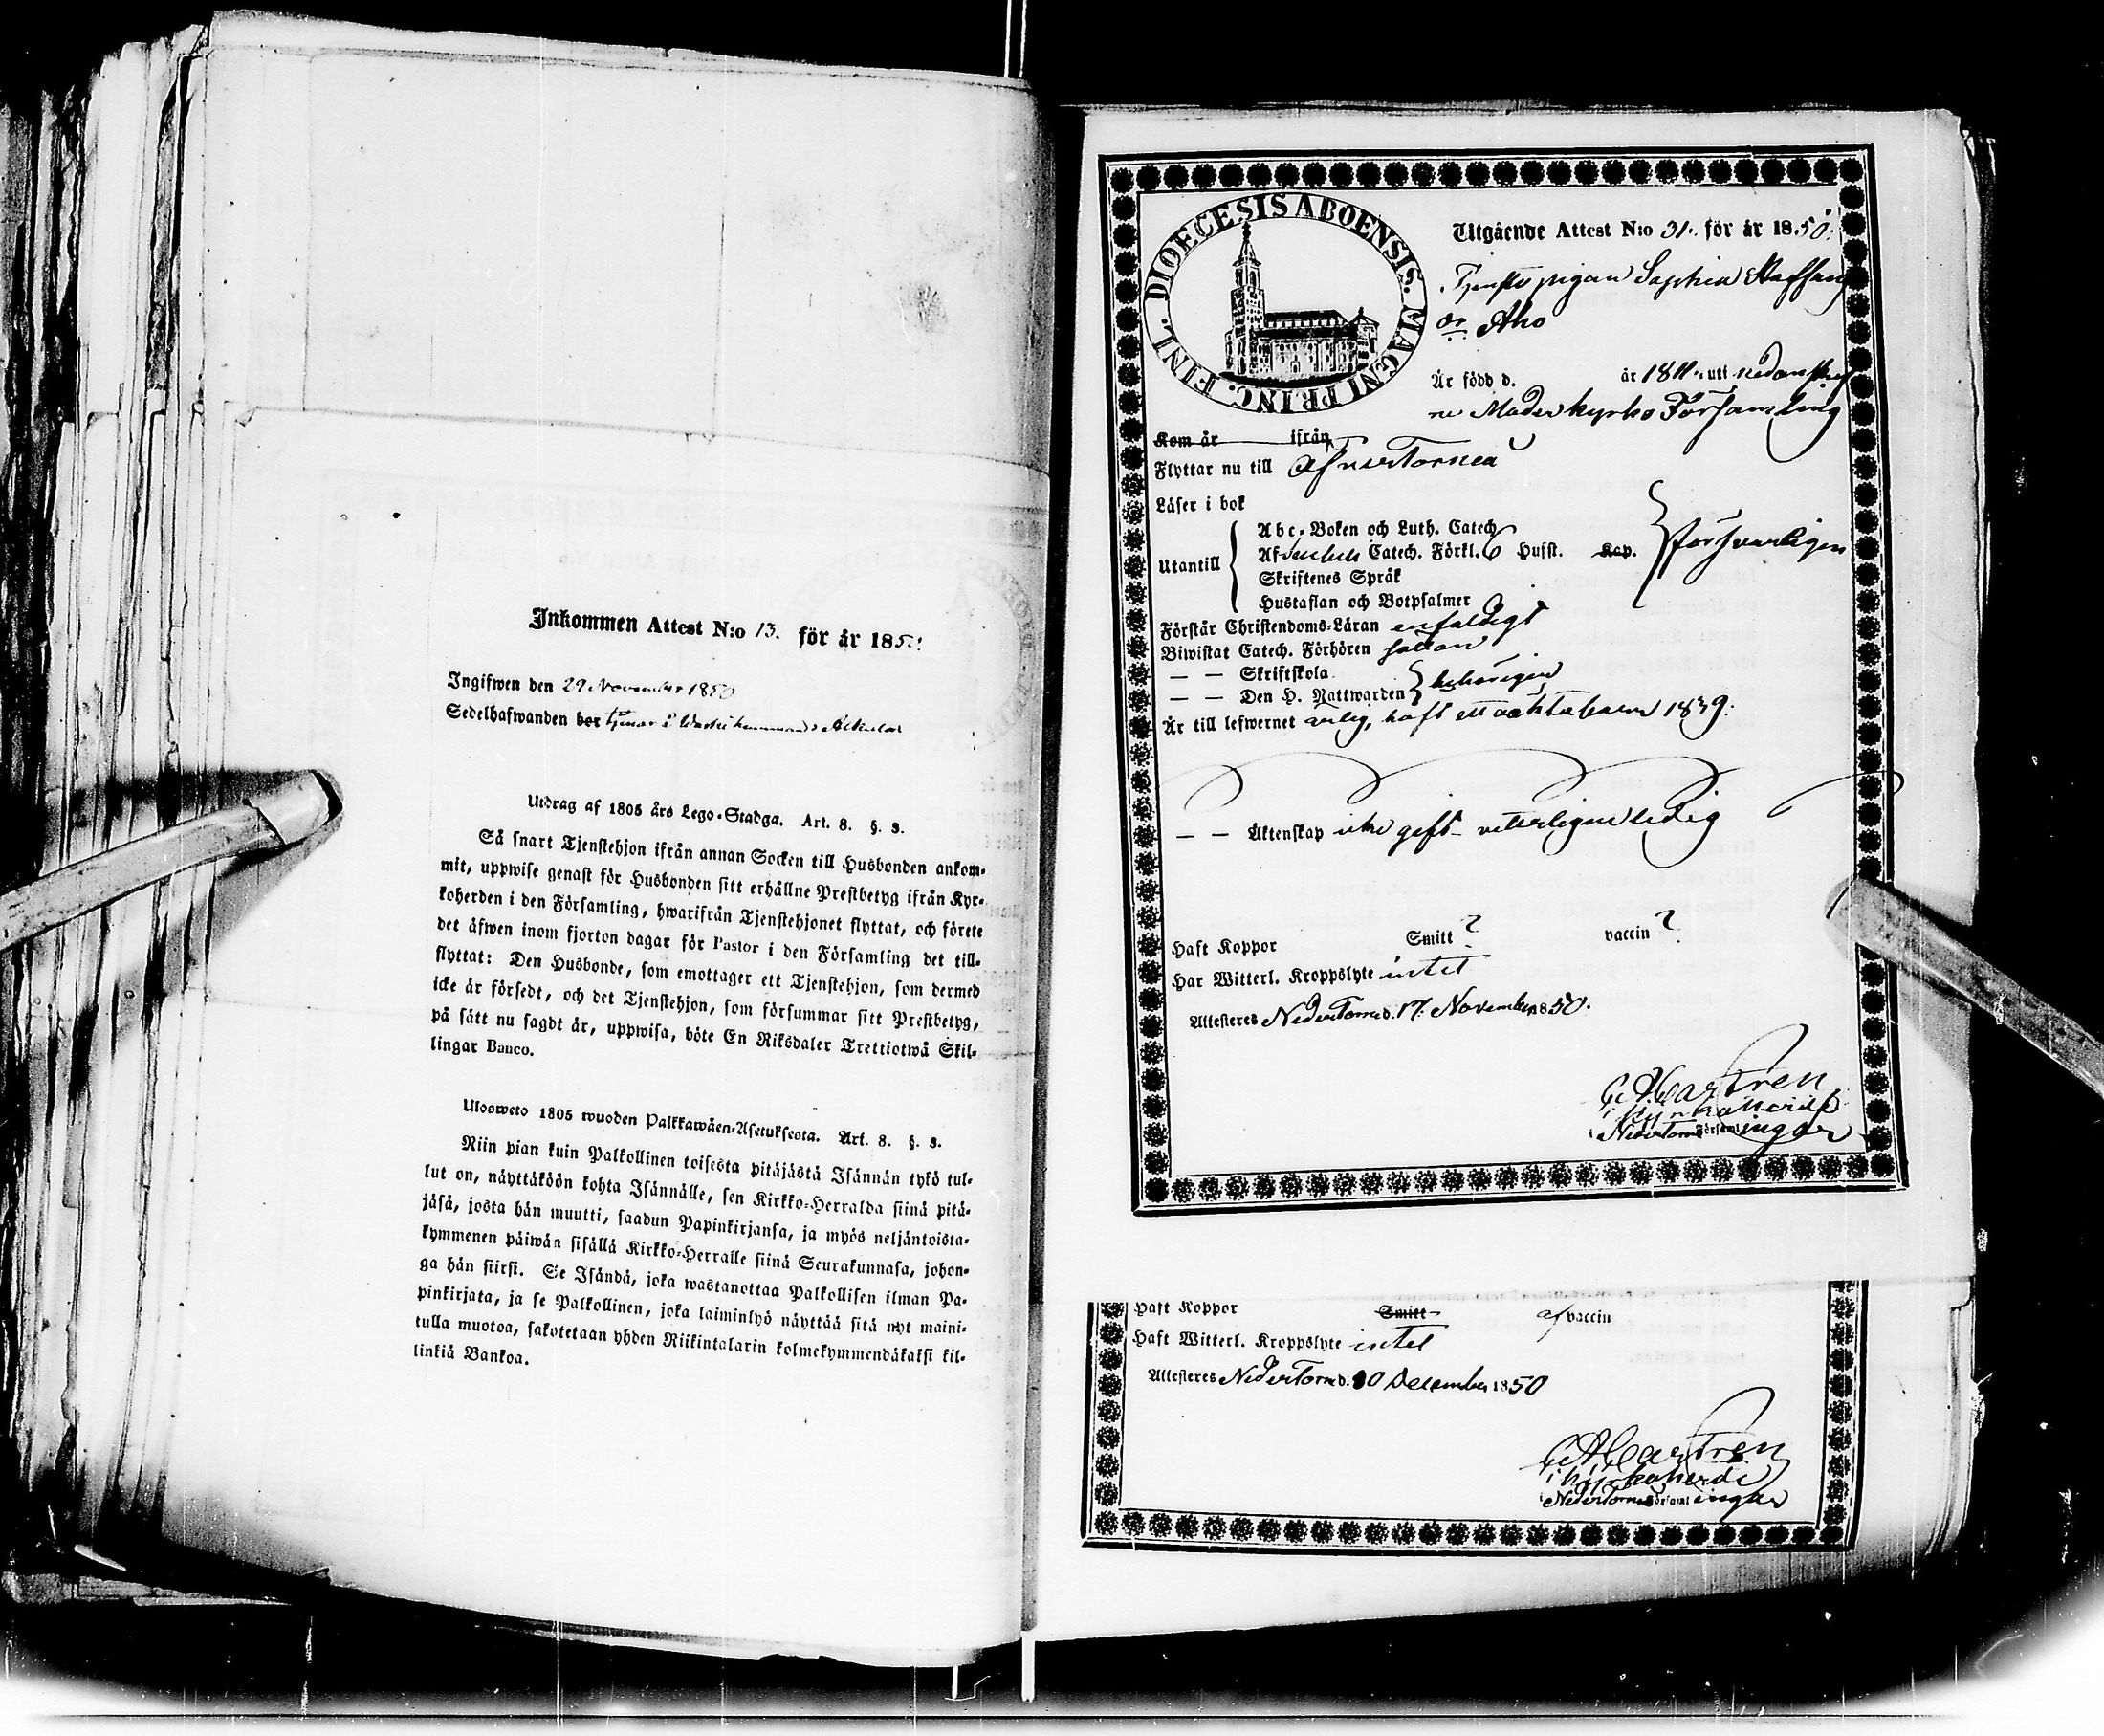 Inkommen Attest N:o 13. för år 185
Ingifwen den 29 November 1850
Sedelhafwanden bor tjenar å
Utdrag af 1805 års Lego-Stadga. Art. 8. §. 3.
Så snart Tjenstehjon ifrån annan Socken till Husbonden ankom-
mit, uppwise genast för Husbonden sitt erhållne Prestbetyg ifrån Kyr-
koherden i den Församling, hwarifrån Tjenstehjonet flyttat, och förete
det äfwen inom fjorton dagar för Pastor i den Församling det till-
flyttat: Den Husbonde, som emottager ett Tjenstehjon, som dermed
icke är försedt, och det Tjenstehjon, som försummar sitt Prestbetyg,
på sätt nu sagdt är, uppwisa, böte En Riksdaler Trettiotwå Skil-
lingar Banco.
Uloosweto 1805 wuoden Palkkawäen-Asetuksesta. Art. 8. §. 3.
Niin pian kuin Palkollinen toisesta pitäjästä Isännän tykö tul-
lut on, näyttäköön kohta Isännälle, sen Kirkko-Herralda siinä pitä-
jäsä, josta hän muutti, saadun Papinkirjansa, ja myös neljäntoista-
kymmenen päiwän sisällä Kirkko-Herralle siinä Seurakunnasa, johon-
ga hän siirsi. Se Isändä, joka wastanottaa Palkollisen ilman Pa-
pinkirjata, ja se Palkollinen, joka laiminlyö näyttää sitä nyt maini-
tulla muotoa, sakotetaan yhden Riikintalarin kolmekymmendäkaksi kil-
linkiä Bankoa.
DIOECESIS ABOENSIS. MAGNI PRINC. FINL.
Utgående Attest N:o 31. för år 1850.
Tjenste pigan Sophia Staffans
dr Aho
Är född d. år 1811. uti nedanskref
ne Moderkyrko Församling
Kom år ifrån
Flyttar nu till Öfver Torneå
Läser i bok
Utantill
Abc-Boken och Luth. Catech.
Af Catech. Förkl. Husst. Kap. försvarligen
Skriftenes Språk
Hustaflan och Botpsalmer
Förstår Christendoms-Läran enfaldigt
Biwistat Catech. Förhören sällan
— — Skriftskola
— — Den H. Nattwarden behörigen
Är till lefwernet ärlig, haft ett oäkta barn 1839.
— — Äktenskap icke gift veterligen ledig
Haft Koppor Smitt ? vaccin ?
Har Witterl. Kroppslyte intet
Attesteres NederTorneå d. 17. November 1850.
C A Castren
i kyrkoherde
i NederTorneå Församlingar
Haft Koppor Smitt af vaccin
Haft Witterl. Kroppslyte intet
Attesteres NederTorneå d. 10 December 1850
C A Castren
i kyrkoherde
i NederTorneå Församlingar